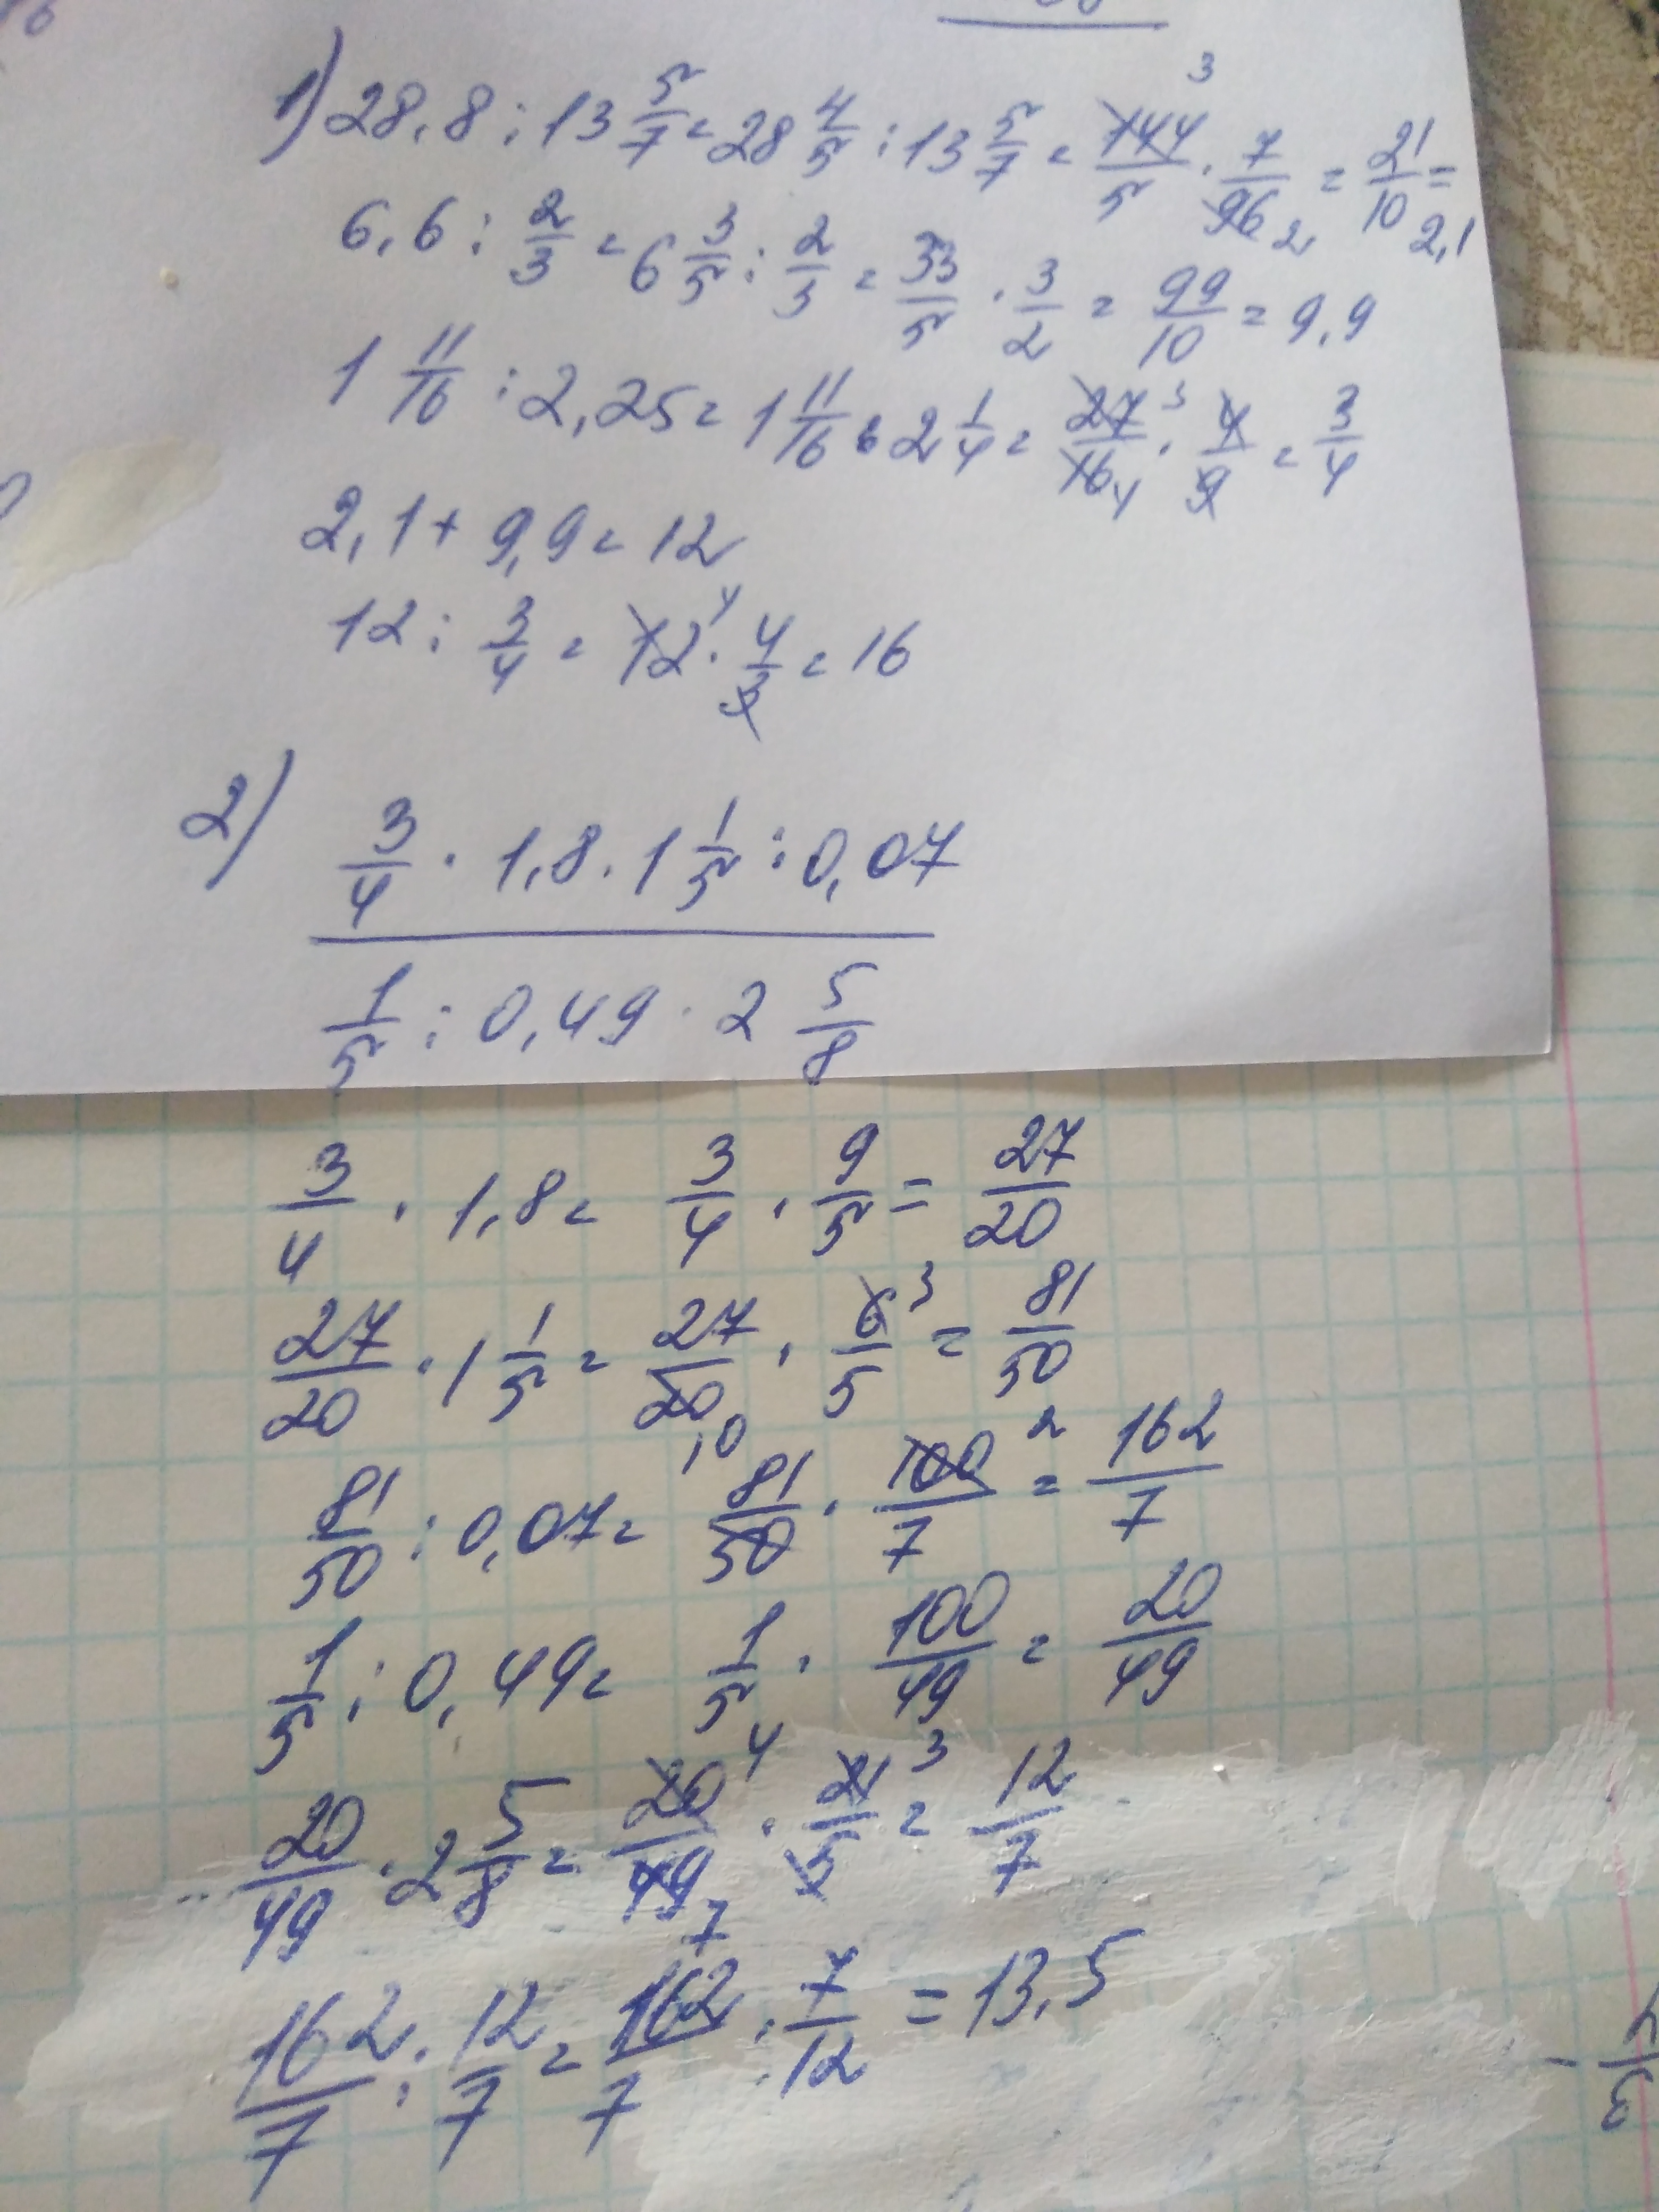 1) 28,8 : 13 5/7 = 28 4/5 : 13 5/7 = 144/5 3 · 7/96 2 = 21/10 = 2,1
6,6 : 2/3 = 6 3/5 : 2/3 = 33/5 · 3/2 = 99/10 = 9,9
1 11/16 : 2,25 = 1 11/16 : 2 1/4 = 27/16 3 4 · 4/9 = 3/4
2,1 + 9,9 = 12
12 : 3/4 = 12 4 · 4/3 = 16
2) 3/4 · 1,8 · 1 1/5 : 0,07
1/5 : 0,49 · 2 5/8
3/4 · 1,8 = 3/4 · 9/5 = 27/20
27/20 · 1 1/5 = 27/20 10 · 6/5 3 = 81/50
81/50 : 0,07 = 81/50 · 100/7 2 = 162/7
1/5 : 0,49 = 1/5 · 100/49 = 20/49
20/49 · 2 5/8 = 20/49 4 7 · 21/5 3 = 12/7
162/7 : 12/7 = 162/7 · 7/12 = 13,5
3/4